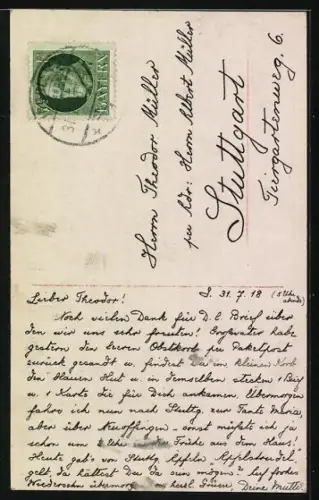 BAYERN
Herrn Theodor Müller
per Adr: Herrn Albert Müller
Stuttgart
Tiergartenweg 6.
Lieber Theodor! L. 31. 7. 18 (5 Uhr
abends)
Noch vielen Dank für D. l. Brief über
den wir uns sehr freuten! Großvater hat
gestern den leeren Obstkorb per Paketpost
zurück gesandt u. findest Du im kleinen Korb
den Hut u. in demselben stecken 1 Brief
u. 1 Karte die für Dich ankamen. Übermorgen
fahre ich nun nach Stuttg. zur Tante Maria,
aber über sonst müßte ich ja
schon um 2 Uhr Frühe aus dem Haus!
Heute gab's von Stuttg. Äpfeln Apfelstrudel
gelt, da hättest Du da sein mögen? Auf frohes
Wiedersehn übermorg. herzl. Grüßen Deine Mutter